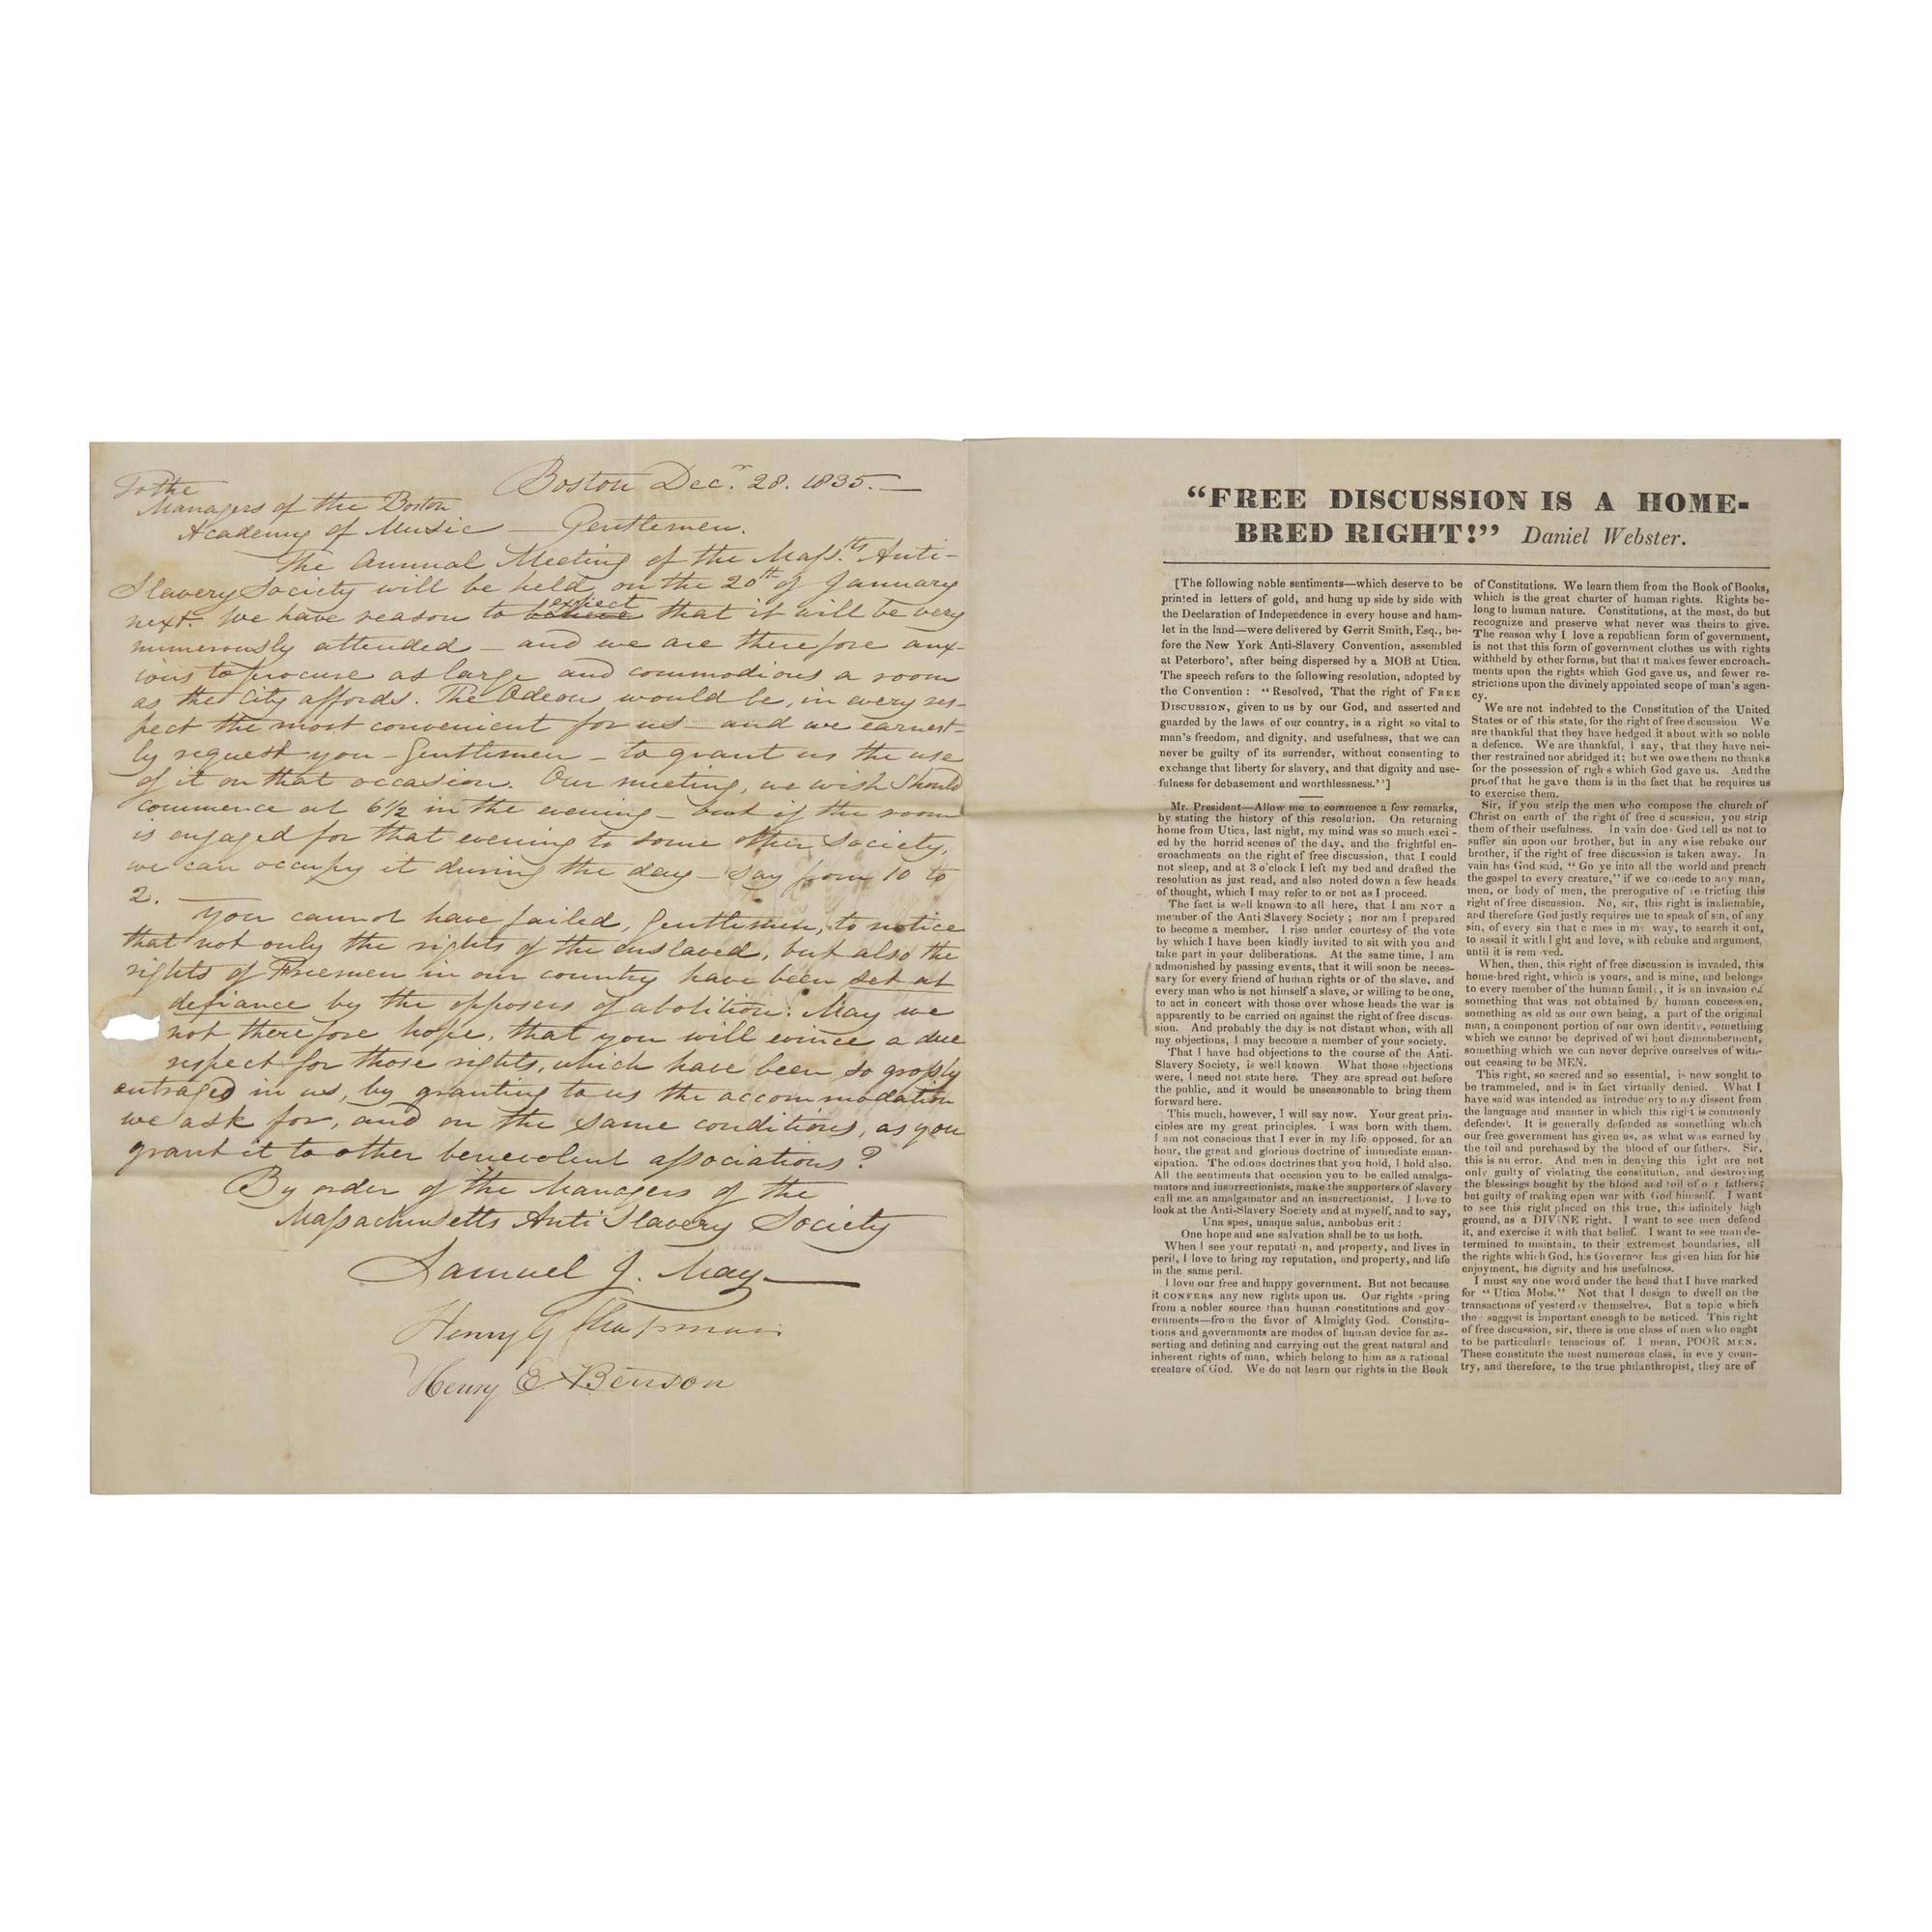 Boston Decr. 28. 1835.—
To the
Managers of the Boston
Academy of Music — Gentlemen.
The Annual Meeting of the Mass.ts Anti-
Slavery Society will be held on the 20th of January
next. We have reason to believe expect that it will be very
numerously attended — and we are therefore anx-
ious to procure as large and commodious a room
as the City affords. The Odeon would be, in every res-
pect the most convenient for us — and we earnest-
ly request you — Gentlemen — to grant us the use
of it on that occasion. Our meeting, we wish should
commence at 6 1/2 in the evening — but if the room
is engaged for that evening to some other Society,
we can occupy it during the day — say from 10 to
2.
You cannot have failed, Gentlemen, to notice
that not only the rights of the enslaved, but also the
rights of Freemen in our country have been set at
defiance by the opposers of abolition. May we
not therefore hope, that you will evince a due
respect for those rights, which have been so grossly
outraged in us, by granting to us the accommodation
we ask for, and on the same conditions, as you
grant it to other benevolent associations?
By order of the Managers of the
Massachusetts Anti Slavery Society
Samuel J. May
Henry G Chapman
Henry E. Benson
"FREE DISCUSSION IS A HOME-
BRED RIGHT!" Daniel Webster.
[The following noble sentiments—which deserve to be
printed in letters of gold, and hung up side by side with
the Declaration of Independence in every house and ham-
let in the land—were delivered by Gerrit Smith, Esq., be-
fore the New York Anti-Slavery Convention, assembled
at Peterboro', after being dispersed by a MOB at Utica.
The speech refers to the following resolution, adopted by
the Convention: "Resolved, That the right of FREE
DISCUSSION, given to us by our God, and asserted and
guarded by the laws of our country, is a right so vital to
man's freedom, and dignity, and usefulness, that we can
never be guilty of its surrender, without consenting to
exchange that liberty for slavery, and that dignity and use-
fulness for debasement and worthlessness."]
Mr. President—Allow me to commence a few remarks,
by stating the history of this resolution. On returning
home from Utica, last night, my mind was so much exci-
ed by the horrid scenes of the day, and the frightful en-
croachments on the right of free discussion, that I could
not sleep, and at 3 o'clock I left my bed and drafted the
resolution as just read, and also noted down a few heads
of thought, which I may refer to or not as I proceed.
The fact is well known to all here, that I am NOT a
member of the Anti Slavery Society; nor am I prepared
to become a member. I rise under courtesy of the vote
by which I have been kindly invited to sit with you and
take part in your deliberations. At the same time, I am
admonished by passing events, that it will soon be neces-
sary for every friend of human rights or of the slave, and
every man who is not himself a slave, or willing to be one,
to act in concert with those over whose heads the war is
apparently to be carried on against the right of free discus-
sion. And probably the day is not distant when, with all
my objections, I may become a member of your society.
That I have had objections to the course of the Anti-
Slavery Society, is well known. What those objections
were, I need not state here. They are spread out before
the public, and it would be unseasonable to bring them
forward here.
This much, however, I will say now. Your great prin-
ciples are my great principles. I was born with them.
I am not conscious that I ever in my life opposed, for an
hour, the great and glorious doctrine of immediate eman-
cipation. The odious doctrines that you hold, I hold also.
All the sentiments that occasion you to be called amalga-
mators and insurrectionists, make the supporters of slavery
call me an amalgamator and an insurrectionist. I love to
look at the Anti-Slavery Society and at myself, and to say,
Una spes, unaque salus, ambobus erit:
One hope and one salvation shall be to us both.
When I see your reputati n, and property, and lives in
peril, I love to bring my reputation, and property, and life
in the same peril.
I love our free and happy government. But not because
it CONFERS any new rights upon us. Our rights spring
from a nobler source than human constitutions and gov-
ernments—from the favor of Almighty God. Constitu-
tions and governments are modes of human device for as-
serting and defining and carrying out the great natural and
inherent rights of man, which belong to him as a rational
creature of God. We do not learn our rights in the Book
of Constitutions. We learn them from the Book of Books,
which is the great charter of human rights. Rights be-
long to human nature. Constitutions, at the most, do but
recognize and preserve what never was theirs to give.
The reason why I love a republican form of government,
is not that this form of government clothes us with rights
withheld by other forms, but that it makes fewer encroach-
ments upon the rights which God gave us, and fewer re-
strictions upon the divinely appointed scope of man's agen-
cy.
We are not indebted to the Constitution of the United
States or of this state, for the right of free discussion. We
are thankful that they have hedged it about with so noble
a defence. We are thankful, I say, that they have nei-
ther restrained nor abridged it; but we owe them no thanks
for the possession of rights which God gave us. And the
proof that he gave them is in the fact that he requires us
to exercise them.
Sir, if you strip the men who compose the church of
Christ on earth of the right of free discussion, you strip
them of their usefulness. In vain does God tell us not to
suffer sin upon our brother, but in any wise rebuke our
brother, if the right of free discussion is taken away. In
vain has God said, "Go ye into all the world and preach
the gospel to every creature," if we concede to any man,
men, or body of men, the prerogative of restricting this
right of free discussion. No, sir, this right is inalienable,
and therefore God justly requires me to speak of sin, of any
sin, of every sin that comes in my way, to search it out,
to assail it with light and love, with rebuke and argument,
until it is removed.
When, then, this right of free discussion is invaded, this
home-bred right, which is yours, and is mine, and belongs
to every member of the human family, it is an invasion of
something that was not obtained by human concession,
something as old as our own being, a part of the original
man, a component portion of our own identity, something
which we cannot be deprived of without dismemberment,
something which we can never deprive ourselves of with-
out ceasing to be MEN.
This right, so sacred and so essential, is now sought to
be trammeled, and is in fact virtually denied. What I
have said was intended as introductory to my dissent from
the language and manner in which this right is commonly
defended. It is generally defended as something which
our free government has given us, as what was earned by
the toil and purchased by the blood of our fathers. Sir,
this is an error. And men in denying this right are not
only guilty of violating the constitution, and destroying
the blessings bought by the blood and toil of our fathers;
but guilty of making open war with God himself. I want
to see this right placed on this true, this infinitely high
ground, as a DIVINE right. I want to see men defend
it, and exercise it with that belief. I want to see men de-
termined to maintain, to their extremest boundaries, all
the rights which God, his Governor has given him for his
enjoyment, his dignity and his usefulness.
I must say one word under the head that I have marked
for "Utica Mobs." Not that I design to dwell on the
transactions of yesterday themselves. But a topic which
the suggest is important enough to be noticed. This right
of free discussion, sir, there is one class of men who ought
to be particularly tenacious of. I mean, POOR MEN.
These constitute the most numerous class, in every coun-
try, and therefore, to the true philanthropist, they are of